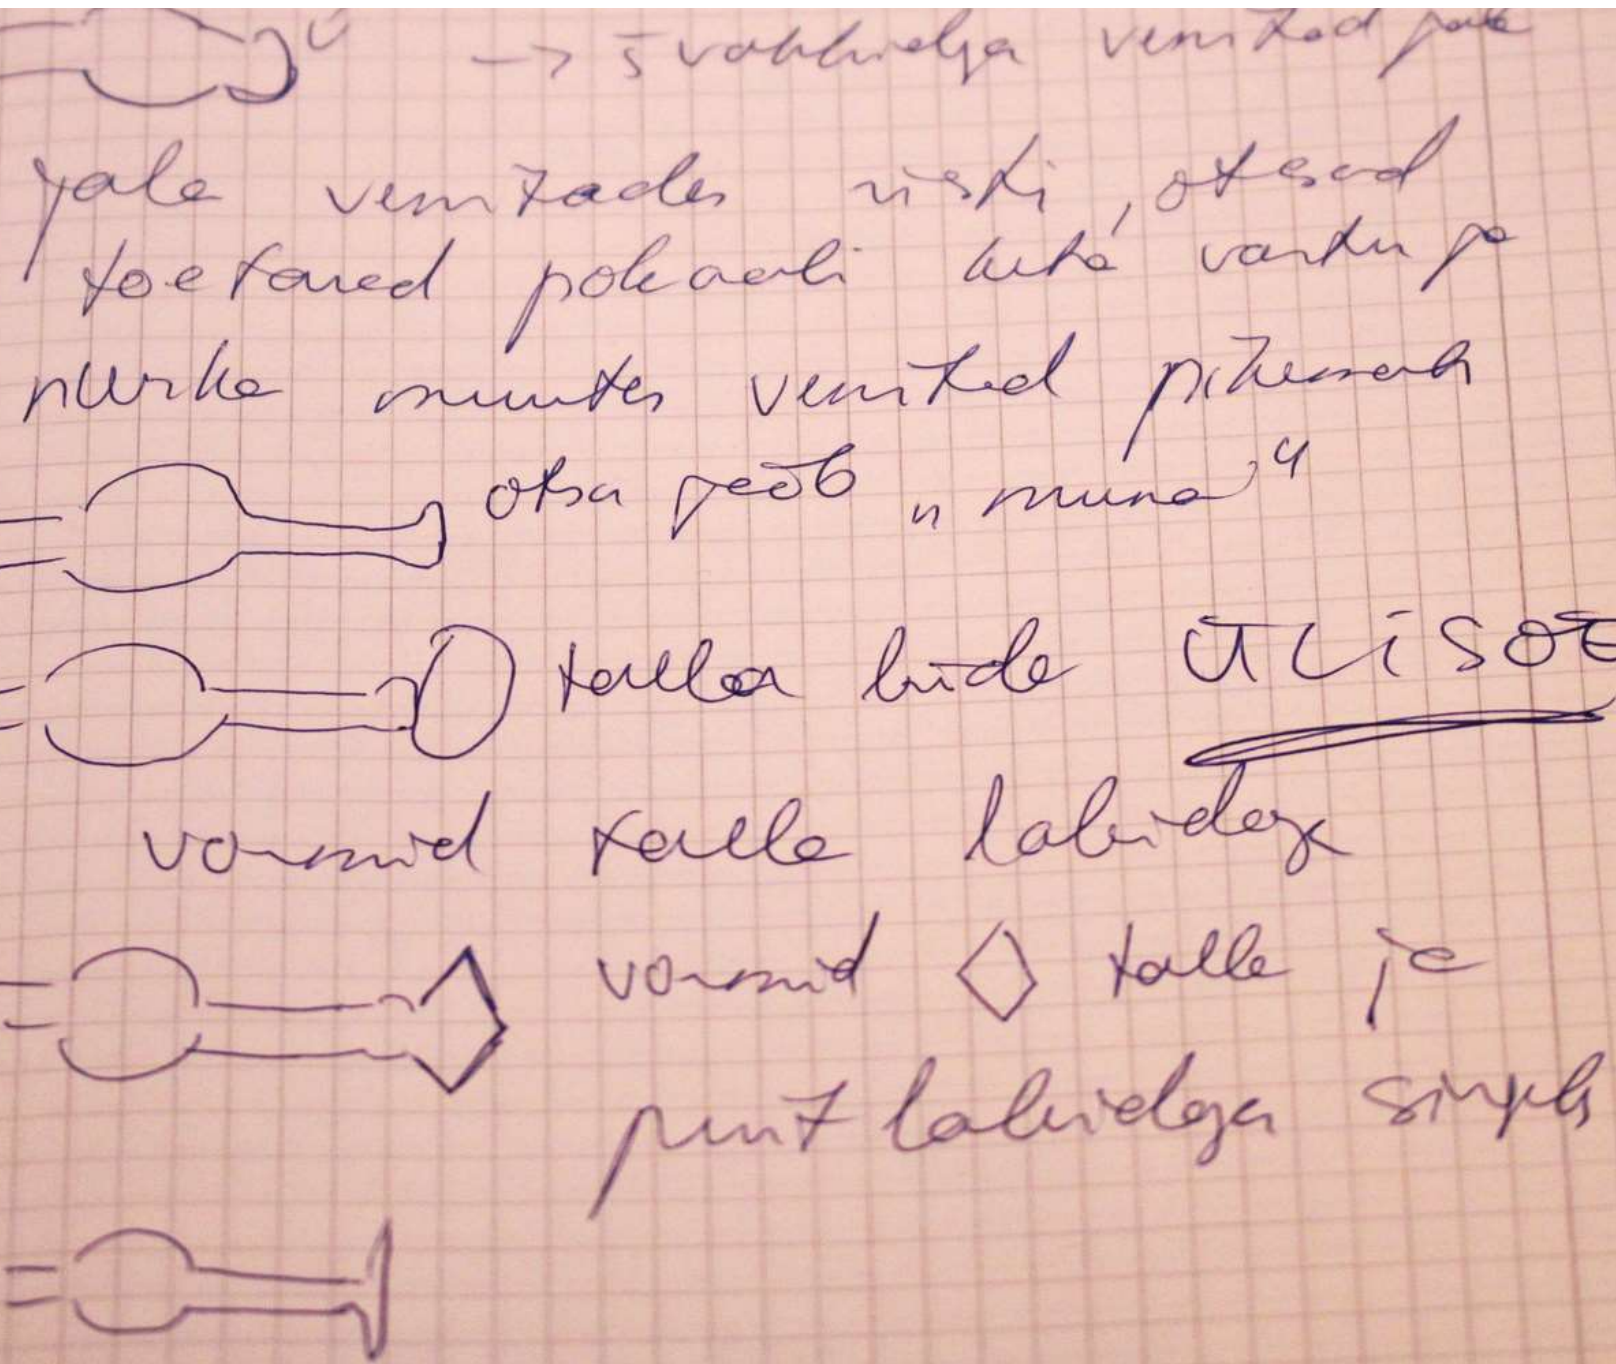 venitad jala
jala venitades risti, otsad
toetared pokaali keha vastu ja
nurka muutes venitad pikemaks
otsa jääb „muna“
talla liide ÜLISOE
vormid talle labidaga
vormid talle ja
puit labidaga sirgeks